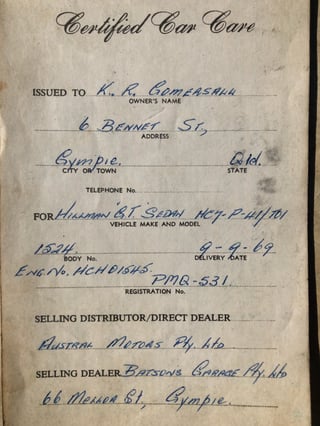 Certified Car Care
ISSUED TO K. R. GOMERSALL
OWNER'S NAME
6 BENNET ST,
ADDRESS
Gympie. Qld.
CITY OR TOWN STATE
TELEPHONE No.
FOR HILLMAN "GT" SEDAN HC7-P-41/701
VEHICLE MAKE AND MODEL
1524. 9-9-69
BODY No. DELIVERY DATE
ENG No. HCHD1545.
PMQ-531.
REGISTRATION No.
SELLING DISTRIBUTOR/DIRECT DEALER
AUSTRAL MOTORS Pty. Ltd
SELLING DEALER BATSONS GARAGE Pty. Ltd
66 MELLOR ST, Gympie.